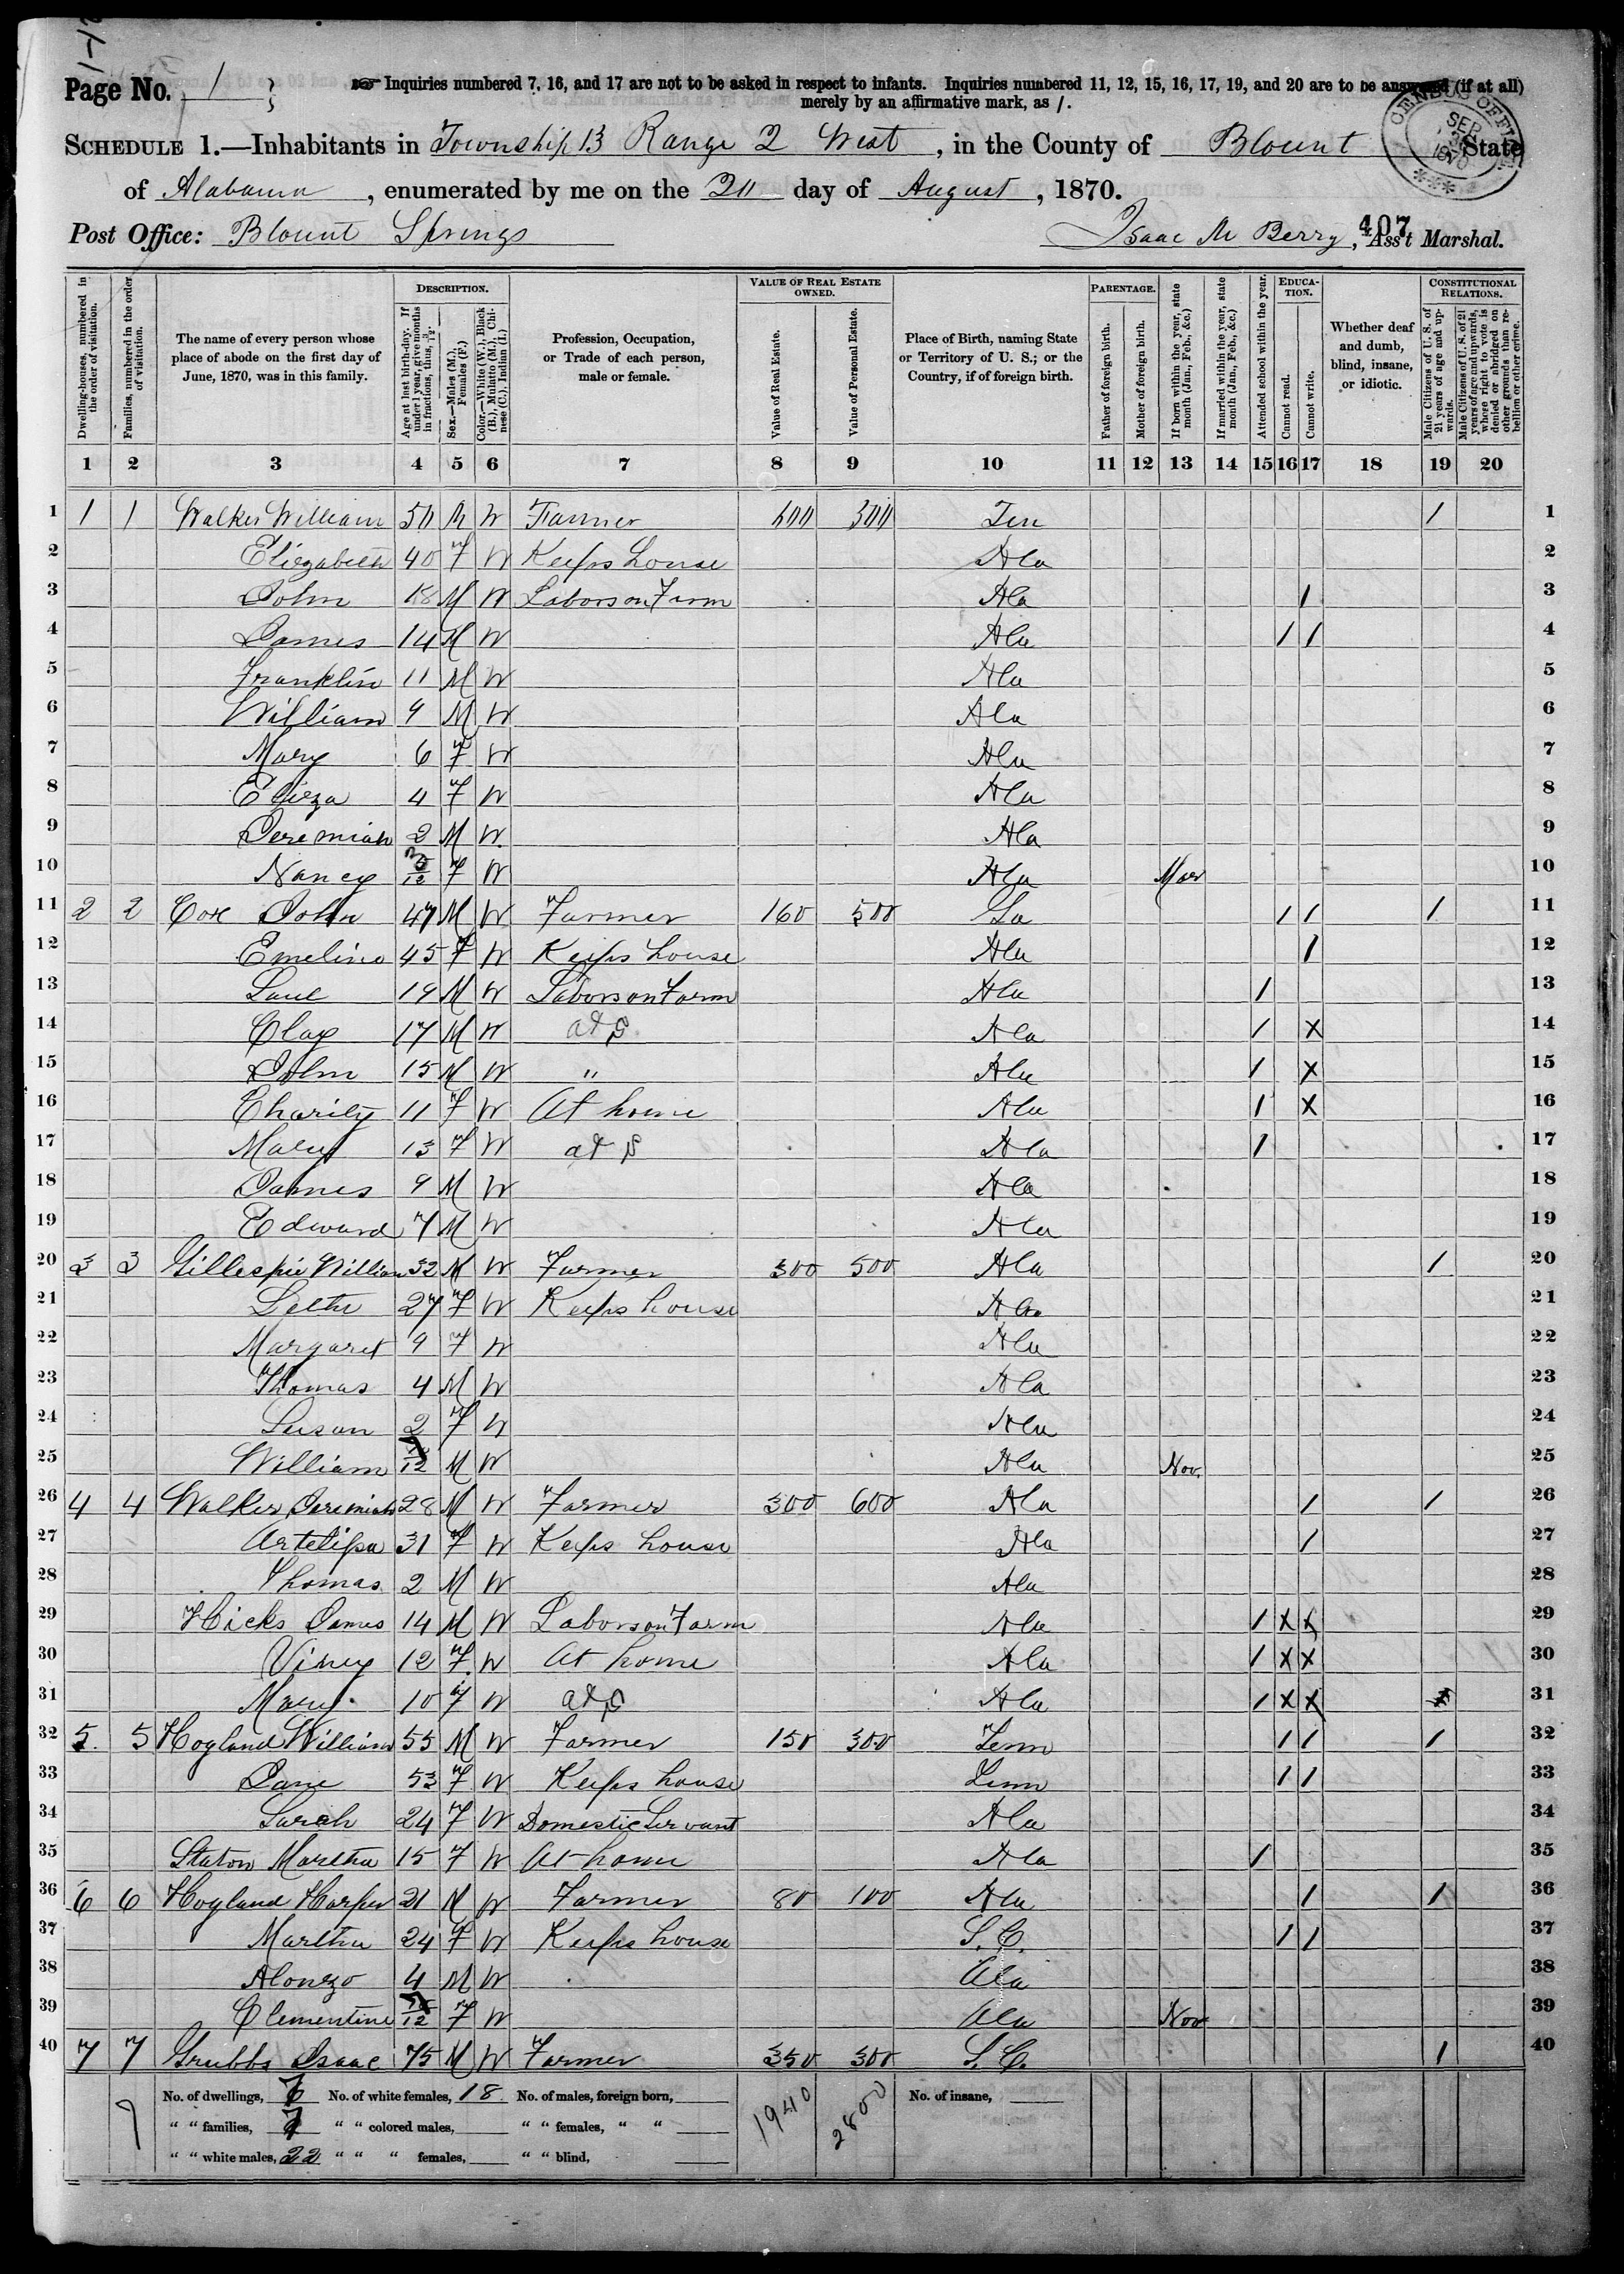 1-12
Page No. 1
Inquiries numbered 7, 16, and 17 are not to be asked in respect to infants. Inquiries numbered 11, 12, 15, 16, 17, 19, and 20 are to be answered (if at all)
merely by an affirmative mark, as /.
CENSUS OFFICE SEP 1870
SCHEDULE 1.—Inhabitants in Township 13 Range 2 West, in the County of Blount State
of Alabama, enumerated by me on the 20 day of August, 1870.
407
Post Office: Blount Springs Isaac M Berry, Ass't Marshal.
Dwelling-houses, numbered in the order of visitation.
Families, numbered in the order of visitation.
The name of every person whose place of abode on the first day of June, 1870, was in this family.
DESCRIPTION.
Age at last birth-day. If under 1 year, give months in fractions, thus, 3/12.
Sex.—Males (M.), Females (F.)
Color.—White (W.), Black (B.), Mulatto (M.), Chinese (C.), Indian (I.)
Profession, Occupation, or Trade of each person, male or female.
VALUE OF REAL ESTATE OWNED.
Value of Real Estate.
Value of Personal Estate.
Place of Birth, naming State or Territory of U. S.; or the Country, if of foreign birth.
PARENTAGE.
Father of foreign birth.
Mother of foreign birth.
If born within the year, state month (Jan., Feb., &c.)
If married within the year, state month (Jan., Feb., &c.)
Attended school within the year.
EDUCATION.
Cannot read.
Cannot write.
Whether deaf and dumb, blind, insane, or idiotic.
CONSTITUTIONAL RELATIONS.
Male Citizens of U. S. of 21 years of age and upwards.
Male Citizens of U. S. of 21 years of age and upwards, whose right to vote is denied or abridged on other grounds than rebellion or other crime.
1 2 3 4 5 6 7 8 9 10 11 12 13 14 15 16 17 18 19 20
1 1 1 Walker William 50 M W Farmer 300 Ten / 1
2 Elizabeth 40 F W Keeps house Ala 2
3 John 18 M W Labors on Farm Ala / 3
4 James 14 M W Ala / / 4
5 Franklin 11 M W Ala 5
6 William 9 M W Ala 6
7 Mary 6 F W Ala 7
8 Elieza 4 F W Ala 8
9 Jeremiah 2 M W. Ala 9
10 Nancy 3/12 F W Ala Mar 10
11 2 2 Cox John 47 M W Farmer 160 500 Ga / / / 11
12 Emeline 45 F W Keeps house Ala / 12
13 19 M W Labors on Farm Ala / 13
14 Clay 17 M W at S Ala / X 14
15 John 15 M W " Ala / X 15
16 Charity 11 F W At home Ala / X 16
17 Mary 13 F W at S Ala / 17
18 James 9 M W Ala 18
19 Edward 7 M W Ala 19
20 3 3 Gillespie William 32 M W Farmer 300 500 Ala / 20
21 27 F W Keeps house Ala 21
22 Margaret 9 F W Ala 22
23 Thomas 4 M W Ala 23
24 Susan 2 F W Ala 24
25 William 7/12 M W Ala Nov. 25
26 4 4 Walker Jeremiah 28 M W Farmer 300 600 Ala / / 26
27 Artelipa 31 F W Keeps house Ala / 27
28 Thomas 2 M W Ala 28
29 Hicks James 14 M W Labors on Farm Ala / X X 29
30 Viney 12 F. W At home Ala / X X 30
31 Mary 10 F W at S Ala / X X 31
32 5. 5 Hogland William 55 M W Farmer 150 300 Tenn / / / 32
33 Jane 53 F W Keeps house Tenn / / 33
34 Sarah 24 F W Domestic Servant Ala 34
35 Staton Martha 15 F W At home Ala / 35
36 6 6 Hogland Harper 21 M W Farmer 80 100 Ala / / 36
37 Martha 24 F W Keeps house S. C. / / 37
38 Alonzo 4 M W Ala 38
39 Clementine 7/12 F W Ala Nov 39
40 7 7 Grubbs Isaac 75 M W Farmer 350 300 S. C. / 40
No. of dwellings, 7 No. of white females, 18 No. of males, foreign born, 1940 2800 No. of insane,
" " families, 7 " " colored males, " " females, " "
" " white males, 22 " " " females, " " blind,